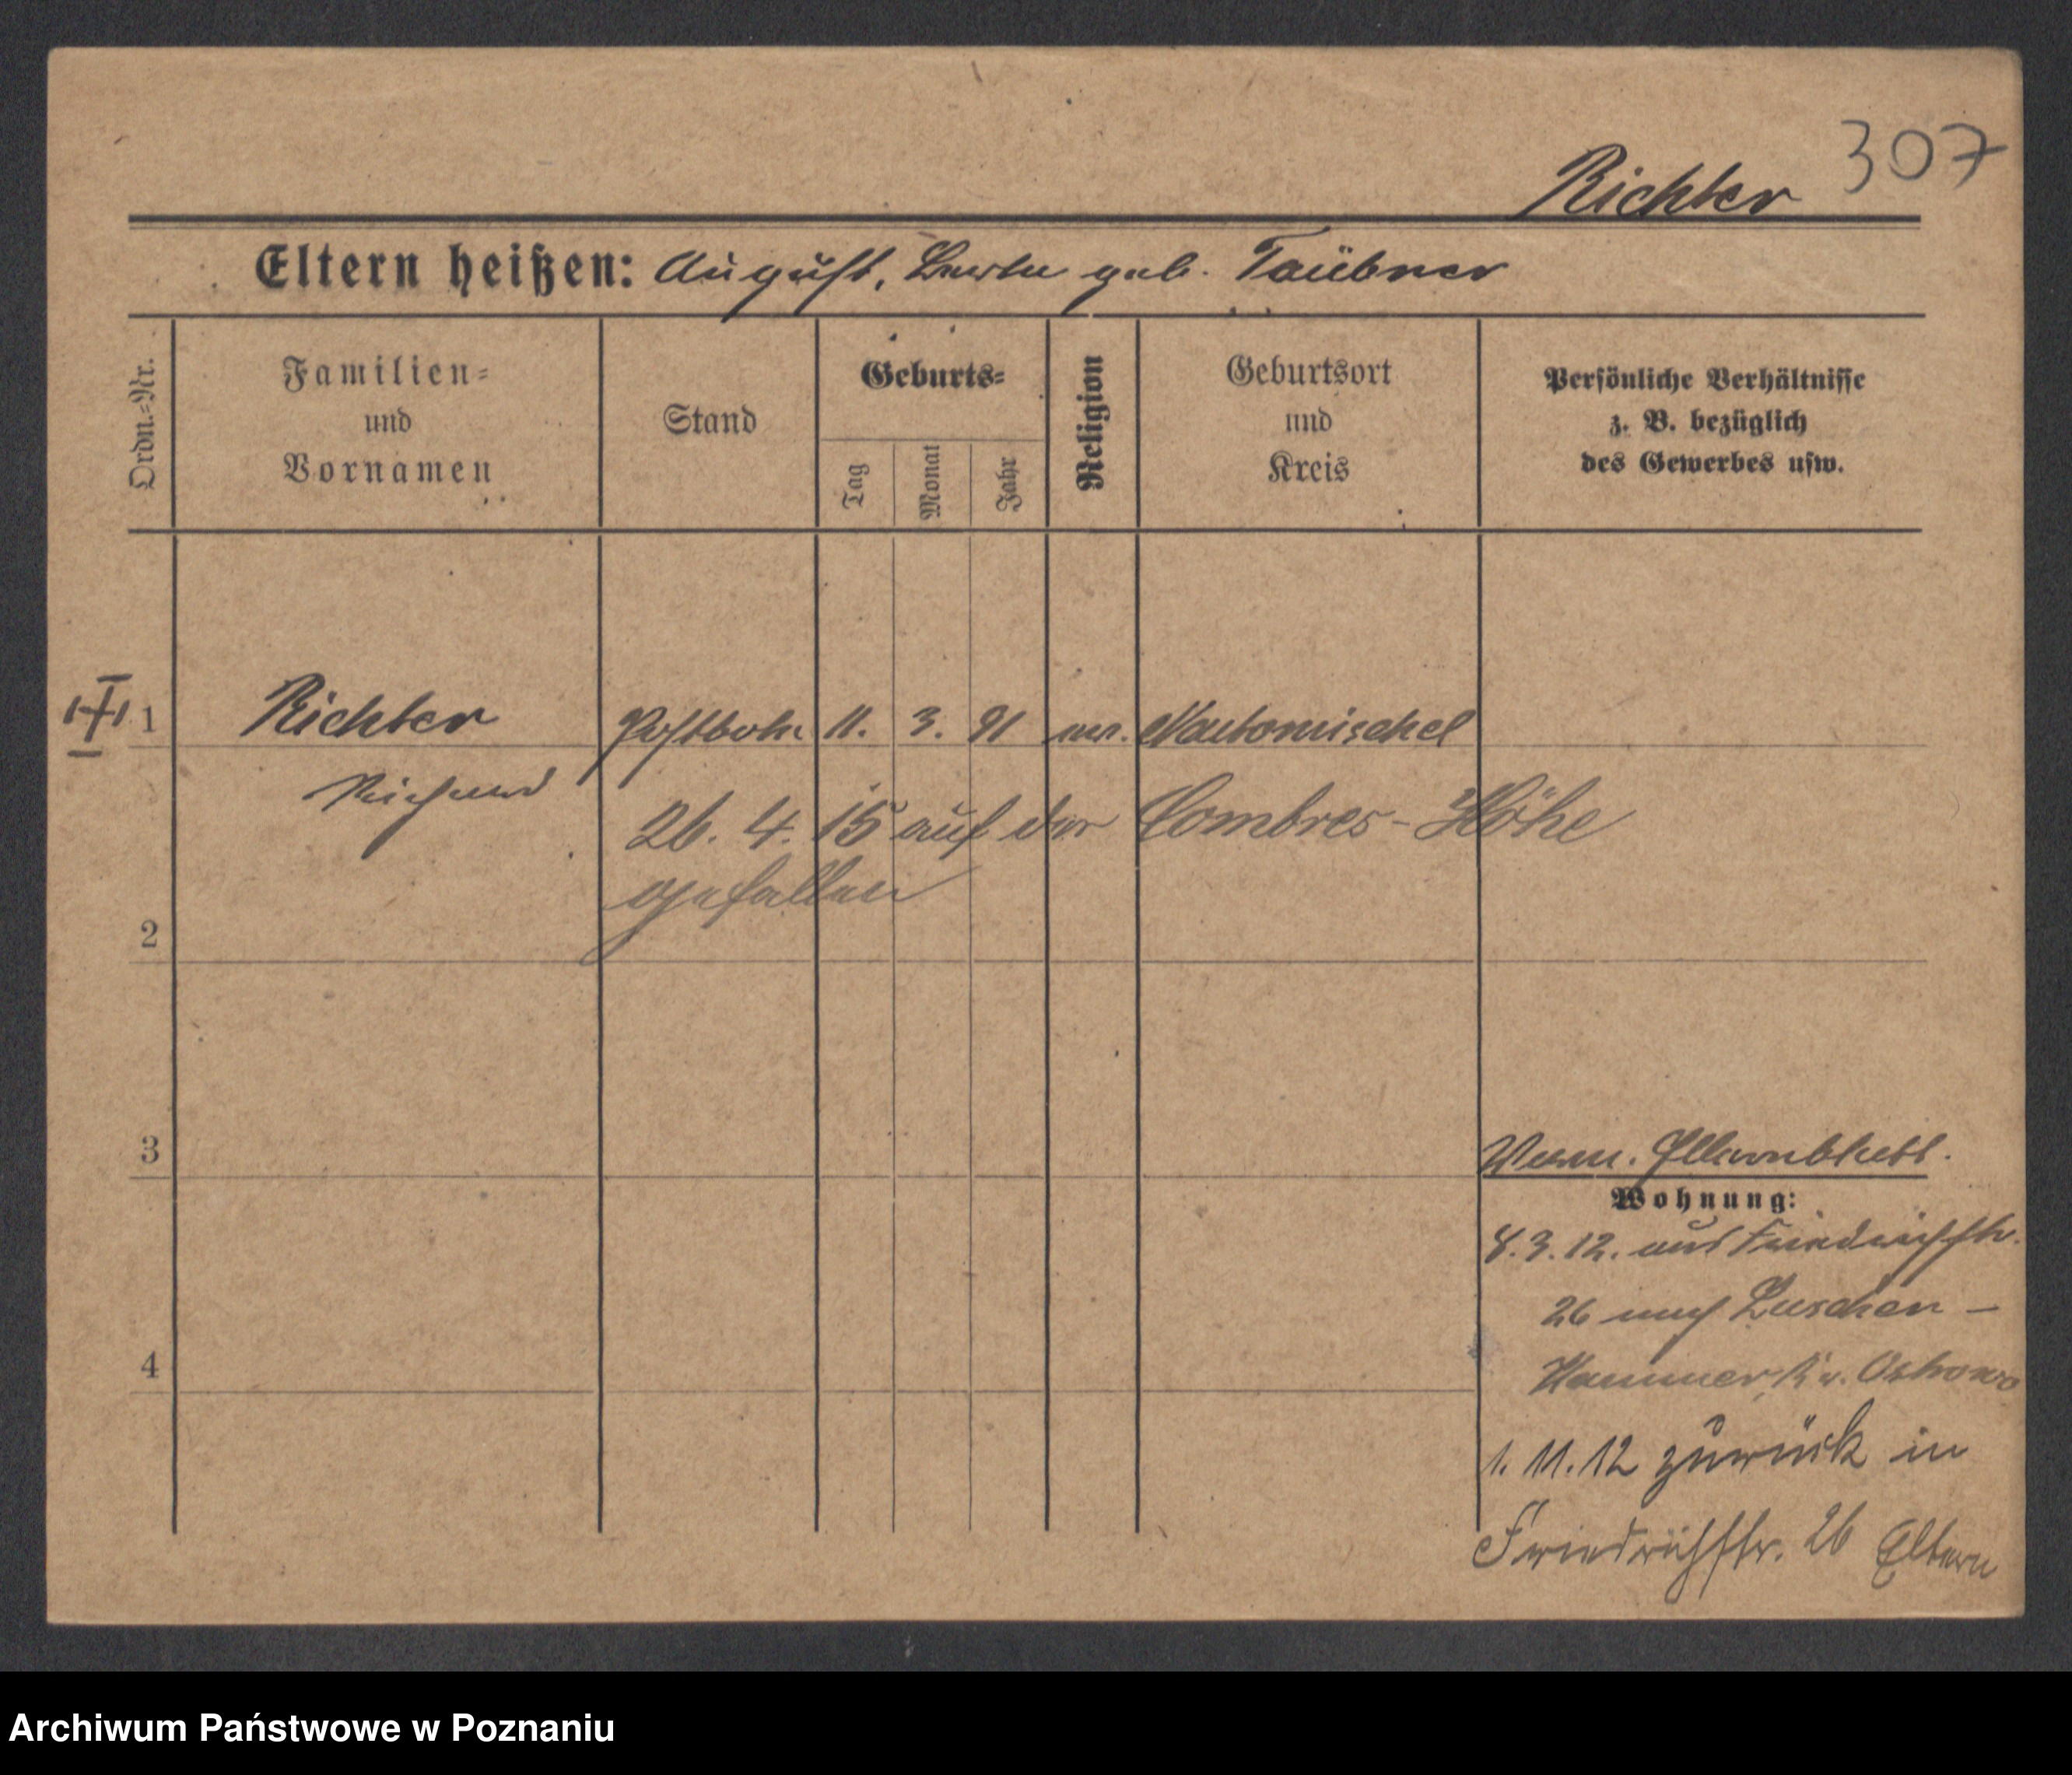 307
Richter
Eltern heißen: August, Berta geb. Taübner
Ordn.-Nr.
Familien-
und
Vornamen
Stand
Geburts-
Tag
Monat
Jahr
Religion
Geburtsort
und
Kreis
Persönliche Verhältnisse
z. B. bezüglich
des Gewerbes usw.
1
Richter
Postbote 11. 3. 91 ev. Neutomischel
Richard
26. 4. 15 auf der Combres-Höhe
gefallen
2
3
Verm. Elternblatt.
Wohnung:
8.3.12. aus Friedrichstr.
26 nach Luschen-
Hammer, Kr. Ostrowo
4
1. 11. 12 zurück in
Friedrichstr. 26 Eltern
Archiwum Państwowe w Poznaniu